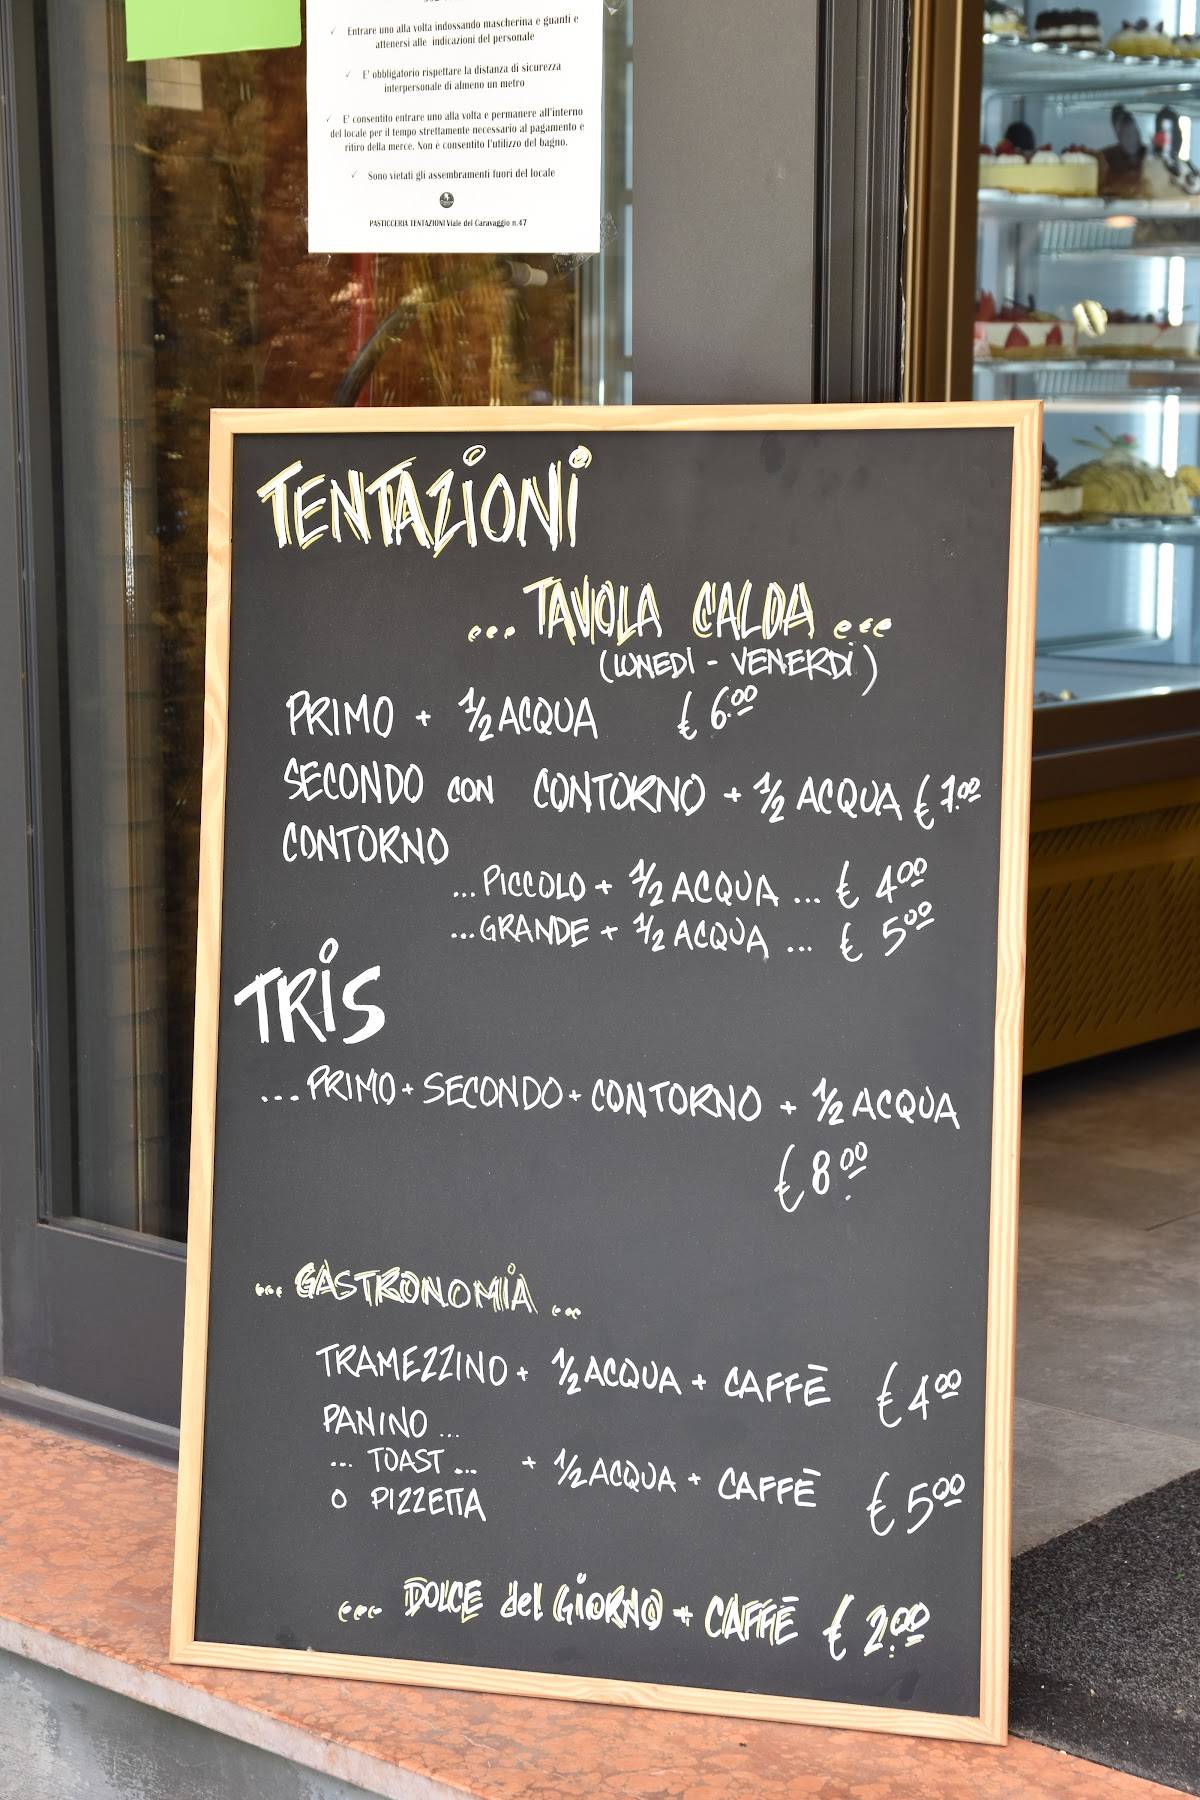 ✓ Entrare uno alla volta indossando mascherina e guanti e
attenersi alle indicazioni del personale
✓ E' obbligatorio rispettare la distanza di sicurezza
interpersonale di almeno un metro
✓ E' consentito entrare uno alla volta e permanere all'interno
del locale per il tempo strettamente necessario al pagamento e
ritiro della merce. Non è consentito l'utilizzo del bagno.
✓ Sono vietati gli assembramenti fuori del locale
PASTICCERIA TENTAZIONI Viale del Caravaggio n.47
TENTAZIONI
... TAVOLA CALDA ...
(LUNEDì - VENERDì)
PRIMO + 1/2 ACQUA € 6.00
SECONDO CON CONTORNO + 1/2 ACQUA € 7.00
CONTORNO
... PICCOLO + 1/2 ACQUA ... € 400
... GRANDE + 1/2 ACQUA ... € 500
TRIS
... PRIMO + SECONDO + CONTORNO + 1/2 ACQUA
€ 8.00
... GASTRONOMIA ...
TRAMEZZINO + 1/2 ACQUA + CAFFÈ € 400
PANINO ...
... TOAST ... + 1/2 ACQUA + CAFFÈ € 500
O PIZZETTA
... DOLCE del GIORNO + CAFFÈ € 2.00